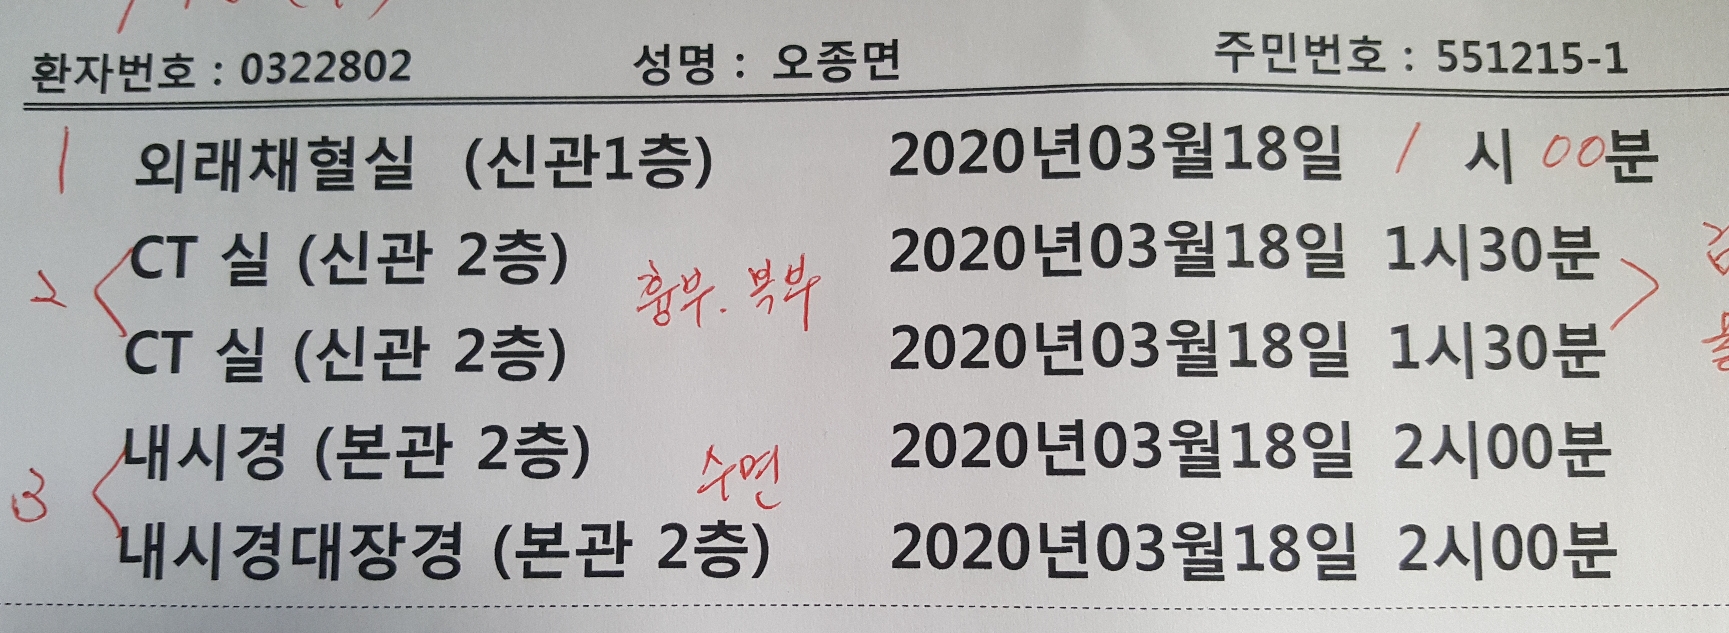 환자번호 : 0322802 성명 : 오종면 주민번호 : 551215-1
1 외래채혈실 (신관1층) 2020년03월18일 1 시 00분
CT 실 (신관 2층) 2020년03월18일 1시30분
2 흉부. 복부
CT 실 (신관 2층) 2020년03월18일 1시30분
내시경 (본관 2층) 2020년03월18일 2시00분
3 수면
내시경대장경 (본관 2층) 2020년03월18일 2시00분